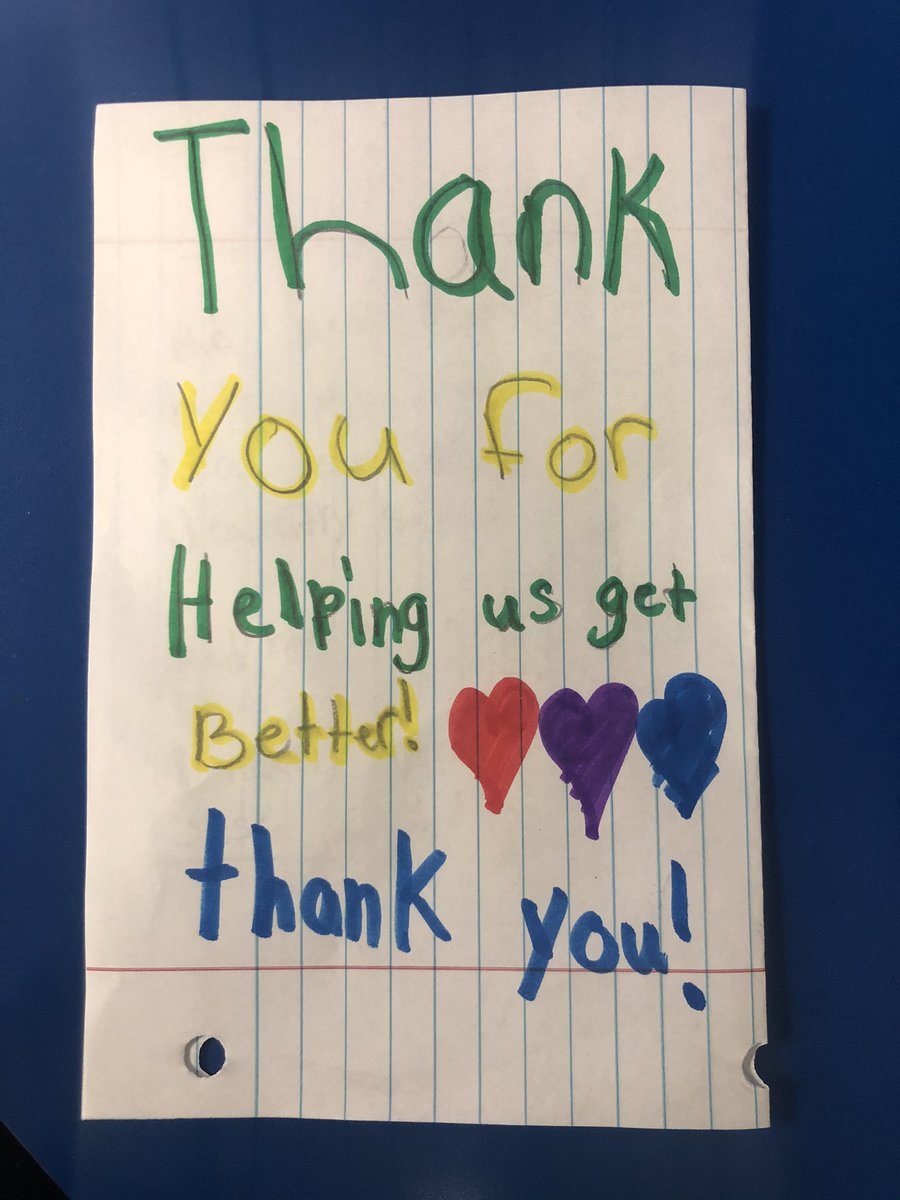 Thank
You for
Helping us get
Better!
thank you!